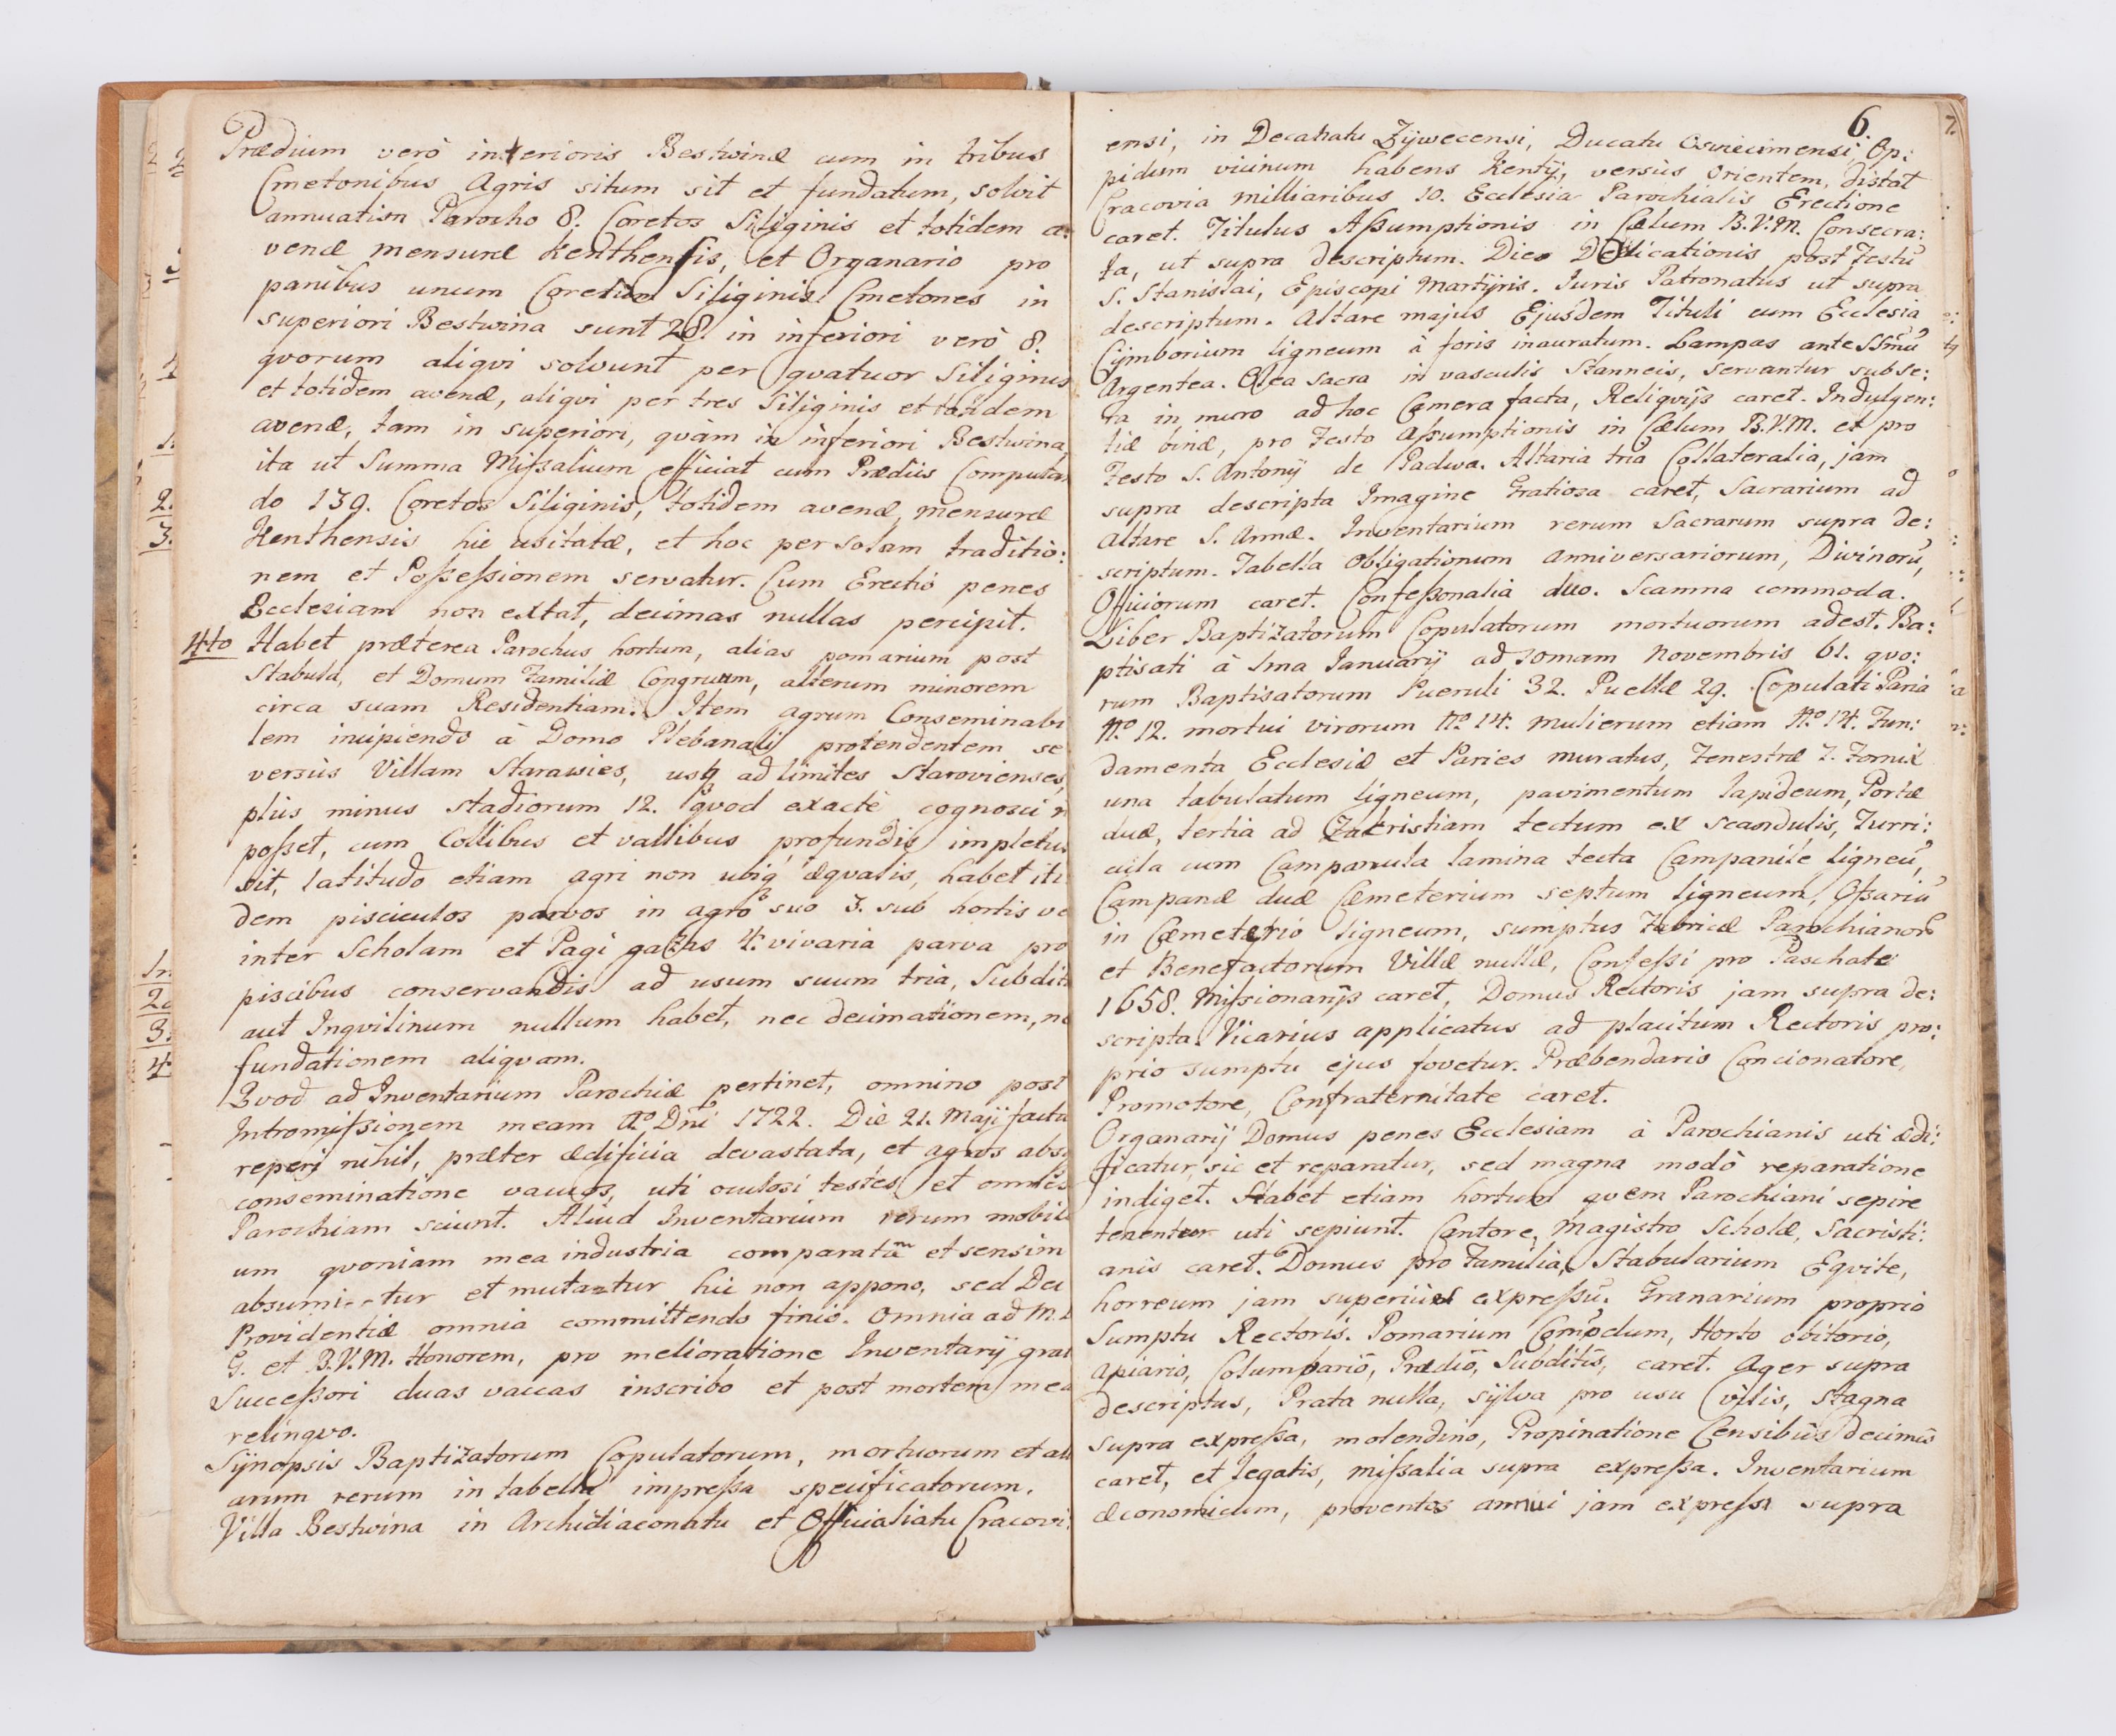 Prædium verò inferioris Bestwinæ cum in tribus
Cmetonibus Agris situm sit et fundatum, solvit
annuatim Parocho 8. Coretos Siliginis et totidem a:
venæ mensuræ Kenthensis, et Organario pro
panibus unum Coretum Siliginis Cmetones in
superiori Bestwina sunt 28. in inferiori verò 8.
qvorum aliqvi solvunt per qvatuor Siliginis
et totidem avenæ, aliqvi per tres Siliginis et totidem
avenæ, tam in superiori, qvàm in inferiori Bestwina,
ita ut Summa Missalium efficiat cum Prædiis Computan
do 139. Coretos Siliginis, totidem avenæ, mensuræ
Kenthensis hic usitatæ, et hoc per solam traditio:
nem et Possessionem servatur. Cum Erectio penes
Ecclesiam non extat, decimas nullas percipit.
4to Habet præterea Parochus hortum, alias pomarium post
Stabula, et Domum Familiæ Congruum, alterum minorem
circa suam Residentiam. Item agrum Conseminabi
lem incipiendo à Domo Plebanali protendentem se
versùs Villam Starawies, usq ad limites Starovienses,
plùs minus stadiorum 12. qvod exactè cognosci n
posset, cum Collibus et vallibus profundis impletus
sit, latitudo etiam agri non ubiq æqvalis, habet iti
dem pisciculos parvos in agro suo 3. sub hortis ve
inter Scholam et Pagi gazas 4. vivaria parva pro
piscibus conservandis ad usum suum tria, Subdit
aut Inqvilinum nullum habet, nec decimationem, ne
fundationem aliqvam.
Qvod ad Inventarium Parochiæ pertinet, omnino post
Intromissionem meam Ao Dni 1722. Die 21. Maji facta
reperi nihil, præter ædificia devastata, et agros absq
conseminatione vacuos, uti oculosi testes et omnes
Parochiam sciunt. Aliud Inventarium rerum mobili
um qvoniam mea industria comparatam et sensim
absumi--tur et mutantur hic non appono, sed Dei
Providentiæ omnia committendo finio. Omnia ad M. D.
G. et B.V.M. Honorem, pro melioratione Inventarij grat
Successori duas vaccas inscribo et post mortem mea
relinqvo.
Sÿnopsis Baptizatorum Copulatorum, mortuorum et ali
arum rerum in tabella impressa specificatorum.
Villa Bestwina in Archidiaconatu et Officialiatu Cracovi:
6.
ensi, in Decanatu Zÿwecensi, Ducatu Osviecimensi Op:
pidum vicinum habens Kentÿ, versùs Orientem, distat
Cracovia milliaribus 10. Ecclesia Parochialis Erectione
caret. Titulus Assumptionis in Cælum B.V.M. Consecra:
ta, ut supra descriptum. Dies Dedicationis post Festu
S. Stanislai, Episcopi Martÿris. Iuris Patronatus ut supra
descriptum. Altare majus Ejusdem Tituli cum Ecclesia
Cÿmborium ligneum à foris inauratum. Lampas ante SSmu
Argentea. Olea Sacra in vasculis Stanneis, servantur sub se:
ra in muro ad hoc Camera facta, Reliqvÿs caret. Indulgen:
tiæ binæ, pro Festo Assumptionis in Cælum B.V.M. et pro
Festo S. Antonÿ de Padwa. Altaria tria Collateralia, jam
supra descripta Imagine Gratiosa caret, Sacrarium ad
Altare S. Annæ. Inventarium rerum Sacrarum supra de:
scriptum. Tabella Obligationum Anniversariorum, Divinoru,
Officiorum caret. Confessionalia duo. Scamna commoda.
Liber Baptizatorum Copulatorum mortuorum adest. Ba:
ptisati à 1ma Januarÿ ad 10mam Novembris 61. qvo:
rum Baptisatorum Pueruli 32. Puellæ 29. Copulati Paria
No 12. mortui virorum No 14. mulierum etiam No 14. Fun:
damenta Ecclesiæ et Paries muratus, Fenestræ 7. Fornix
una tabulatum ligneum, pavimentum lapideum, Portæ
duæ, tertia ad Zacristiam tectum ex scandulis, Turri:
cula cum Campanula lamina tecta Campanile ligneu,
Campanæ duæ Cæmeterium septum ligneum, Ossariu
in Cæmeterio ligneum, sumptus Fabricæ Parochianoru
et Benefactorum Villæ nullæ, Confessi pro Paschate
1658. Missionarÿs caret, Domus Rectoris jam supra de:
scripta. Vicarius applicatus ad placitum Rectoris pro:
prio sumptu ejus fovetur. Præbendaris Concionatore,
Promotore, Confraternitate caret.
Organarÿ Domus penes Ecclesiam à Parochianis uti ædi:
ficatur, sic et reparatur, sed magna modò reparatione
indiget. Habet etiam hortum qvem Parochiani sepire
tenentur uti sepiunt. Cantore, Magistro Scholæ, Sacristi:
anis caret. Domus pro Familia, Stabularium Eqvile,
horreum jam superiùs expressu. Granarium proprio
Sumptu Rectoris. Pomarium Comodum, Horto obitorio,
Apiario, Columbario, Prædio, Subditis, caret. Ager supra
descriptus, Prata nulla, sÿlva pro usu vilis, Stagna
supra expressa, molendino, Propinatione Censibus decimis
caret, et legatis, missalia supra expressa. Inventarium
æconomicum, proventos annui jam expressi supra